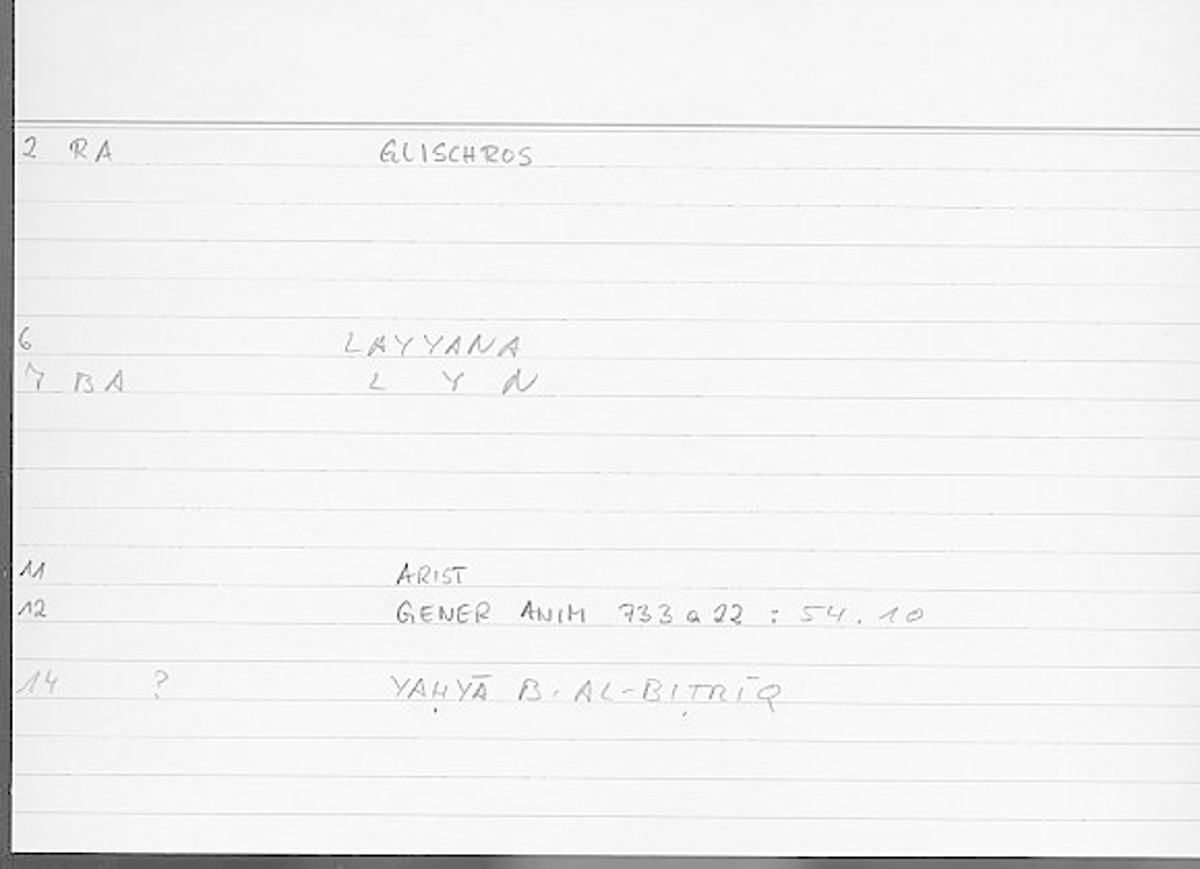 2 RA GLISCHROS
6 LAYYANA
7 BA L Y N
11 ARIST
12 GENER ANIM 733 a 22 : 54.10
14 ? YAḤYĀ B. AL-BIṬRĪQ